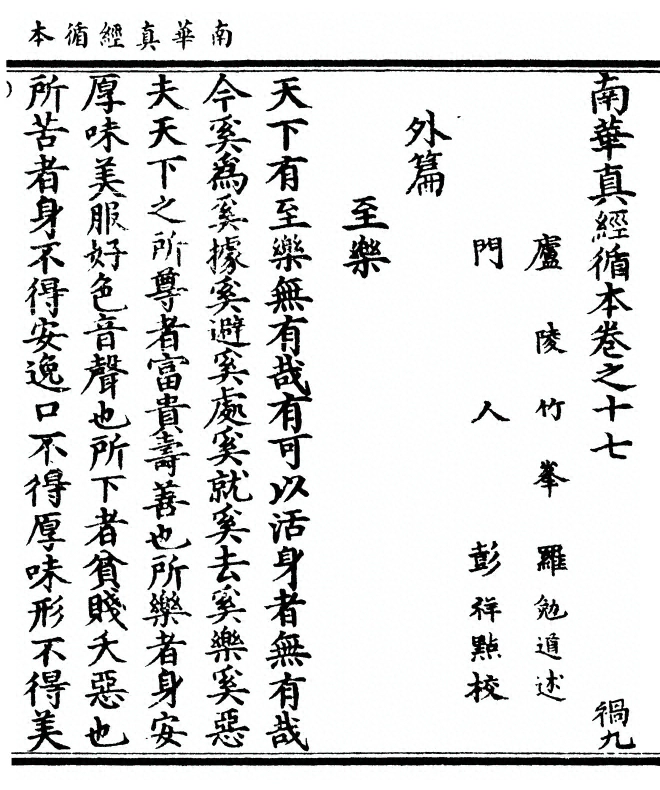 南華真經循本
南華真經循本卷之十七 禍九
廬陵竹峯羅勉道述
門人彭祥點校
外篇
至樂
天下有至樂無有哉有可以活身者無有哉
今奚為奚據奚避奚處奚就奚去奚樂奚惡
夫天下之所尊者富貴壽善也所樂者身安
厚味美服好色音聲也所下者貧賤夭惡也
所苦者身不得安逸口不得厚味形不得美